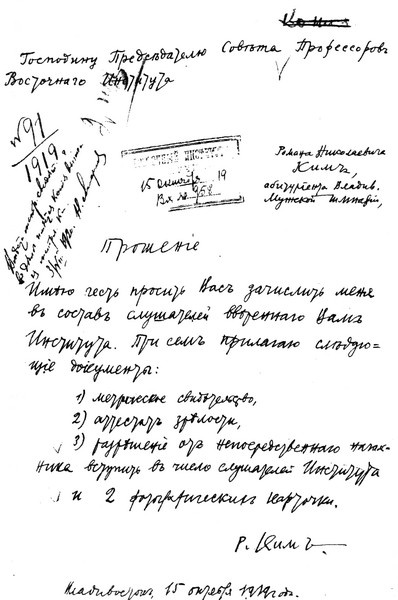 Копия
Господину Председателю Совѣта Профессоровъ
Восточнаго Института
№ 91
1919
Романа Николаевича
Кимъ,
абитурiента Владив.
Мужской Гимназiи,
ВОСТОЧНЫЙ ИНСТИТУТЪ
15 октября 19
Вх. № 958
Прошенiе
Имѣю честь просить Васъ зачислить меня
въ составъ слушателей ввѣреннаго Вамъ
Института. При семъ прилагаю слѣдую=
щiе документы:
1) метрическое свидѣтельство,
2) аттестатъ зрѣлости,
3) разрѣшенiе отъ непосредственнаго началь-
ника вступить въ число слушателей Института
и 2 фотографическiя карточки.
Р. Кимъ.
Владивостокъ, 15 октября 1919 года.